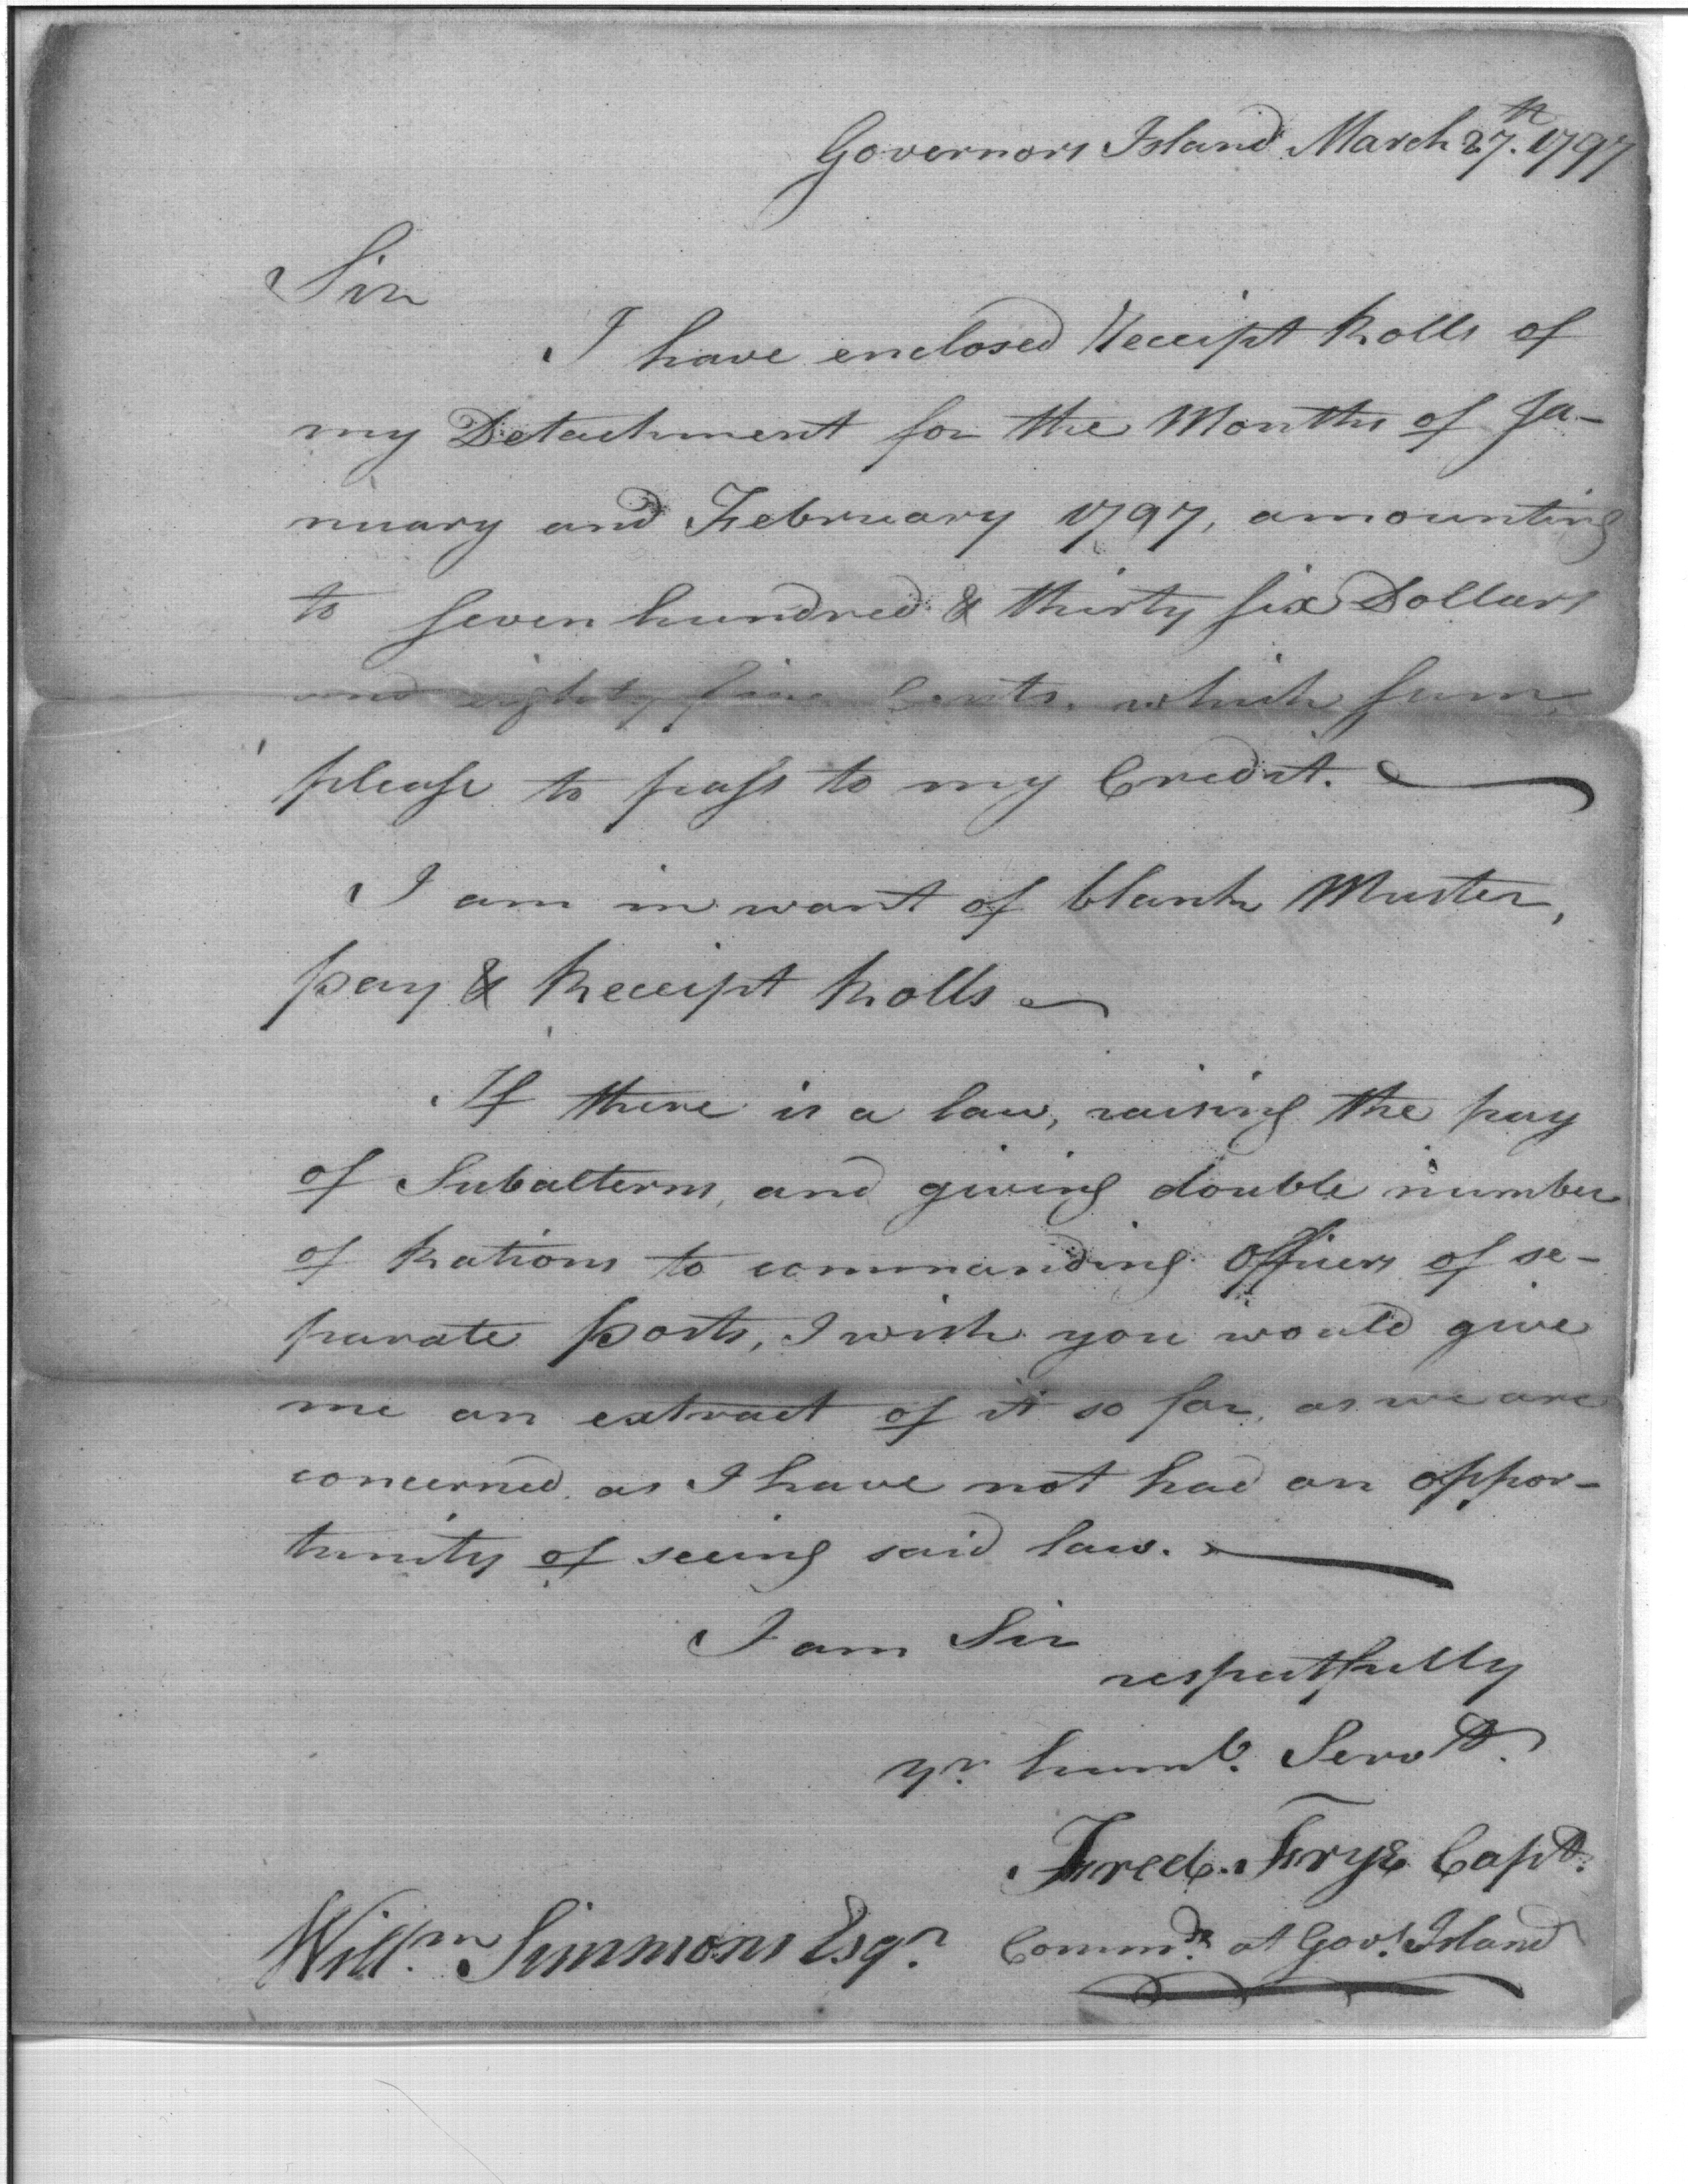 Governors Island March 27.th 1797
Sir
I have enclosed Receipt Rolls of
my Detachment for the Months of Ja-
nuary and February 1797, amounting
to seven hundred & thirty six Dollars
and eighty five Cents, which sum,
please to pass to my Credit.
I am in want of blank Muster,
pay & Receipt Rolls
If there is a law, raising the pay
of Subalterns, and giving double number
of Rations to commanding Officers of se-
parate posts, I wish you would give
me an extract of it so far, as we are
concerned, as I have not had an oppor-
tunity of seeing said law.
I am Sir
respectfully
yr. humb. Servt.
Fred. Frye Capt.
Willm. Simmons Esqr. Commdt. at Govs. Island